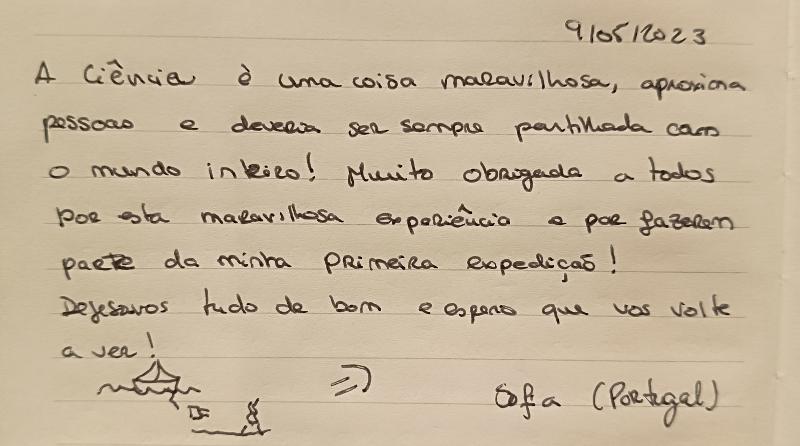 9/05/2023
A Ciência è uma coisa maravilhosa, aproxima
pessoas e deveria ser sempre partilhada com
o mundo inteiro! Muito obrigada a todos
por esta maravilhosa experiência e por fazerem
parte da minha primeira expedição!
Desejavos tudo de bom e espero que vos volte
a ver!
=)
Sofia (Portugal)